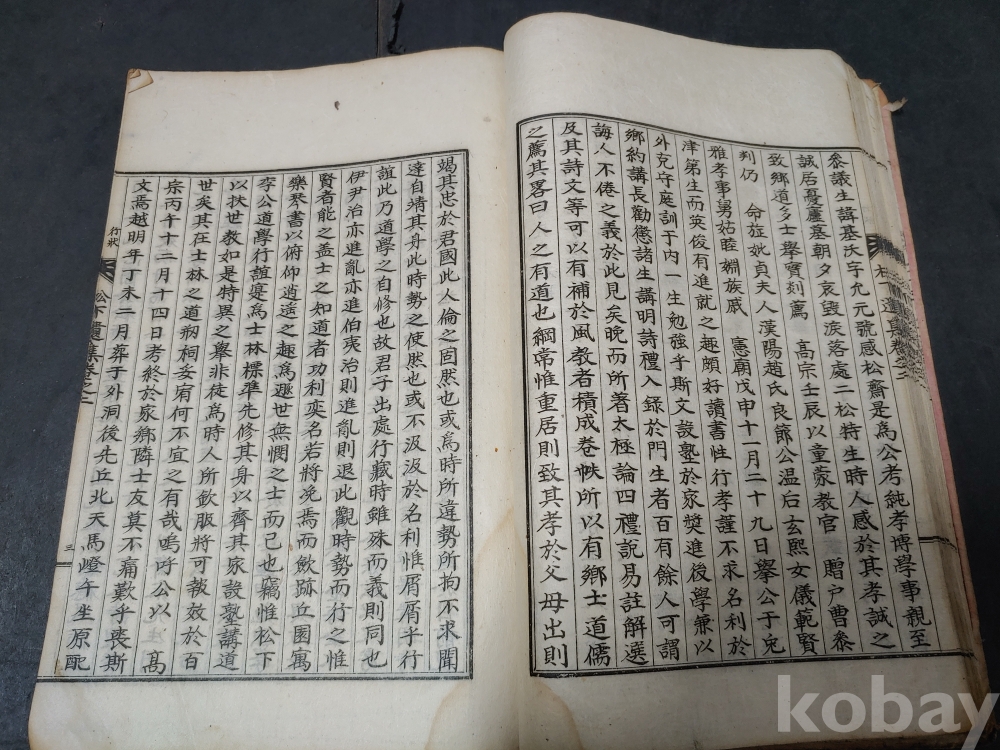 參議生諱基沃字允元號感松齋是爲公考純孝博學事親至
誠居憂廬墓朝夕哀毁淚落處二松特生時人感於其孝誠之
致鄉道多士擧實剡薦 高宗壬辰以童蒙敎官 贈戶曹參
判仍 命㫌妣貞夫人漢陽趙氏良節公温后玄熙女儀範賢
雅孝事舅姑睦婣族戚 憲廟戊申十一月二十九日擧公于兎
津第生而英俊有進就之趣頗好讀書性行孝謹不求名利於
外克守庭訓于内一生勉強乎斯文設塾於家奬進後學兼以
鄉約講長勸懲諸生講明詩禮入錄於門生者百有餘人可謂
誨人不倦之義於此見矣晚而所著太極論四禮說易註解選
及其詩文等可以有補於風敎者積成卷帙所以有鄉士道儒
之薦其畧曰人之有道也綱常惟重居則致其孝於父母出則
竭其忠於君國此人倫之固然也或爲時所違勢所拘不求聞
達自靖其身此時勢之使然也或不汲汲於名利惟屑屑乎行
誼此乃道學之自修也故君子出處行藏時雖殊而義則同也
伊尹治亦進亂亦進伯夷治則進亂則退此觀時勢而行之惟
賢者能之盖士之知道者功利奕名若將浼焉而歛跡丘園寓
樂琴書以俯仰逍遥之趣爲遯世無憫之士而已也竊惟松下
李公道學行誼寔爲士林標準先修其身以齊其家設塾講道
以扶世敎如是特異之擧非徒爲時人所飮服將可報效於百
世矣其在士林之道芻祠妥宥何不宜之有哉嗚呼公以 高
宗丙午十二月十四日考終於家鄉隣士友莫不痛歎乎喪斯
文焉越明年丁未二月葬于外洞後先丘北天馬嶝午坐原配
行狀
松下遺集卷之二
三
kobay